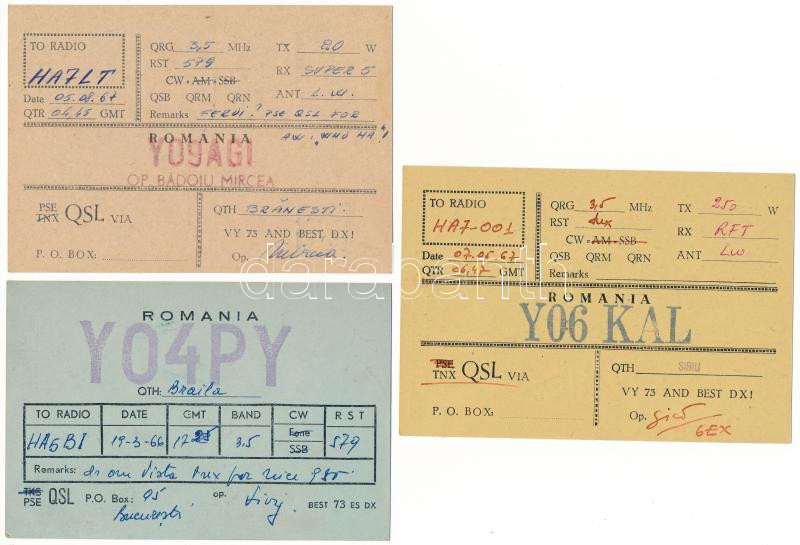 TO RADIO
HA7LT
Date 05.08.67
QTR 04.45 GMT
QRG 3,5 MHz
RST 579
CW - AM - SSB
QSB QRM QRN
TX 80 W
RX SUPER 5
ANT L.W.
Remarks FERDI? PSE QSL FOR
ROMÂNIA
YO9AGI
OP. BĂDOIU MIRCEA
PSE
TNX QSL VIA
P. O. BOX:
QTH BRĂNEȘTI.
VY 73 AND BEST, DX!
Op. Mircea
ROMANIA
YO4PY
QTH: Braila
TO RADIO DATE GMT BAND CW RST
Fone
SSB
HA5BI 19-3-66 17 3,5 579
Remarks: dr om Vista tnx for nice QSO.
TKS
PSE QSL P.O. Box: 95 op.
București
BEST 73 ES DX
TO RADIO
HA7-001
Date 07.05.67
QTR 06.47 GMT
QRG 3,5 MHz
RST
CW - AM - SSB
QSB QRM QRN
Remarks
TX 250 W
RX RFT
ANT LW
ROMÂNIA
YO6 KAL
PSE
TNX QSL VIA
P. O. BOX:
QTH SIBIU
VY 73 AND BEST DX!
Op.
6EX
darabanth